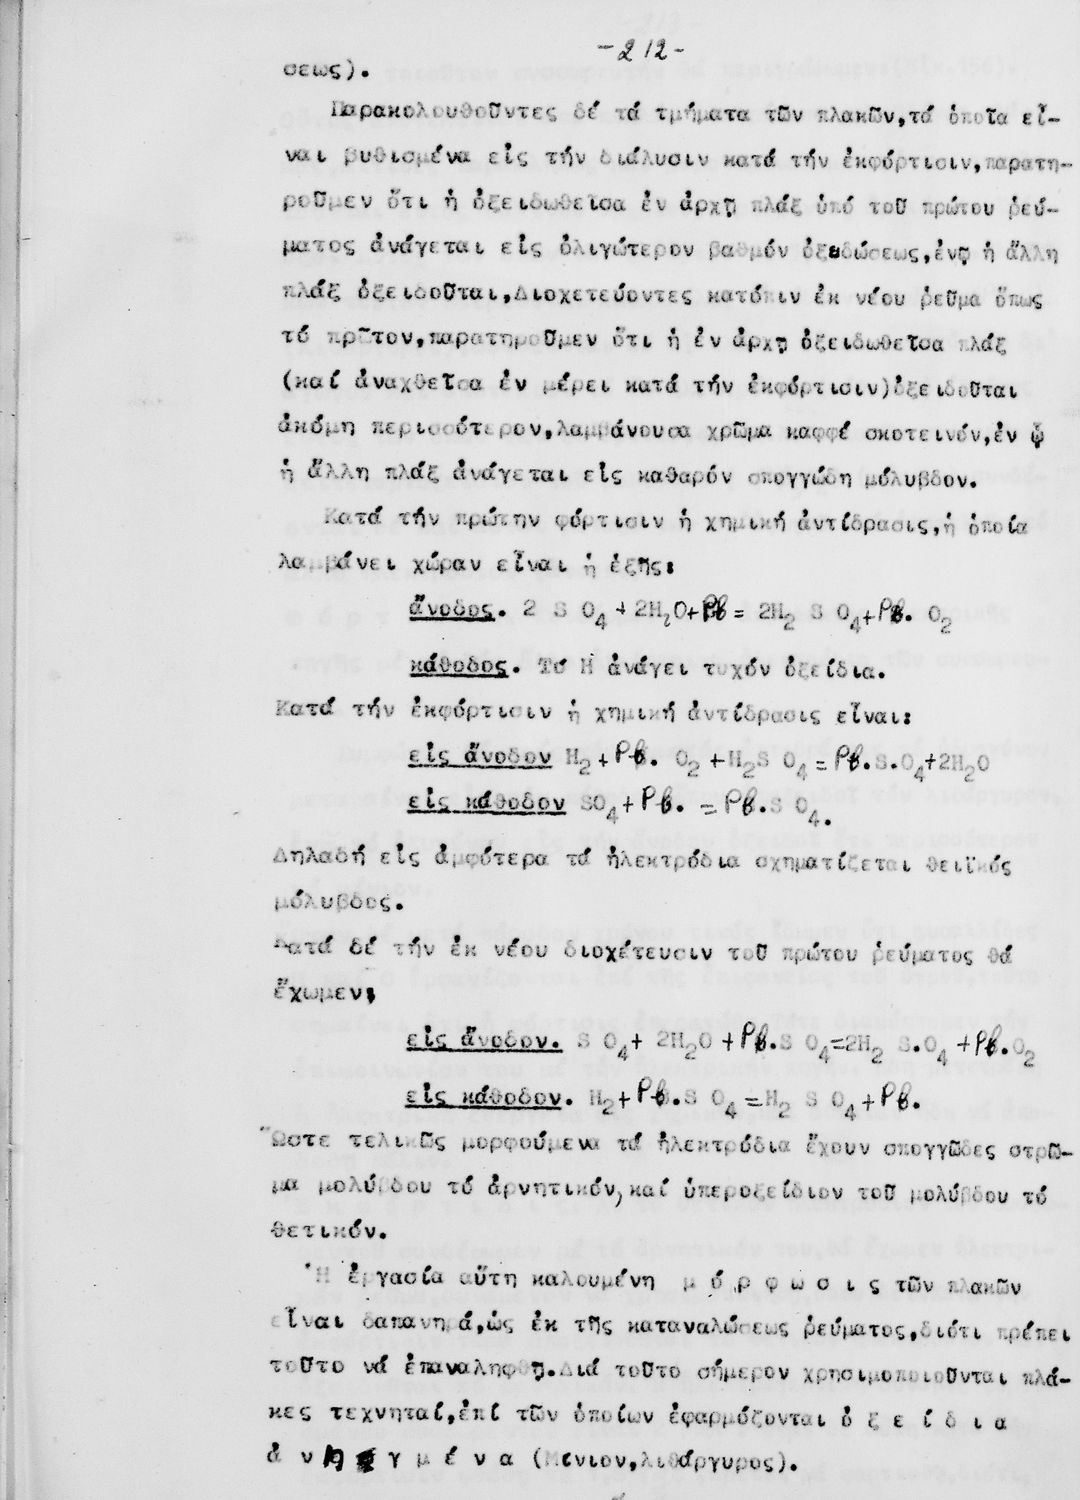 -212-
σεως).
Παρακολουθοῦντες δέ τά τμήματα τῶν πλακῶν,τά ὁποῖα εἶ-
ναι βυθισμένα εἰς τήν διάλυσιν κατά τήν ἐκφόρτισιν,παρατη-
ροῦμεν ὅτι ἡ ὀξειδωθεῖσα ἐν ἀρχῇ πλάξ ὑπό τοῦ πρώτου ῥεύ-
ματος ἀνάγεται εἰς ὀλιγώτερον βαθμόν ὀξειδώσεως,ἐνῷ ἡ ἄλλη
πλάξ ὀξειδοῦται,Διοχετεύοντες κατόπιν ἐκ νέου ῥεῦμα ὅπως
τό πρῶτον,παρατηροῦμεν ὅτι ἡ ἐν ἀρχῇ ὀξειδωθεῖσα πλάξ
(καί ἀναχθεῖσα ἐν μέρει κατά τήν ἐκφόρτισιν)ὀξειδοῦται
ἀκόμη περισσότερον,λαμβάνουσα χρῶμα καφφέ σκοτεινόν,ἐν ᾧ
ἡ ἄλλη πλάξ ἀνάγεται εἰς καθαρόν σπογγώδη μόλυβδον.
Κατά τήν πρώτην φόρτισιν ἡ χημική ἀντίδρασις,ἡ ὁποία
λαμβάνει χώραν εἶναι ἡ ἑξῆς:
ἄνοδος. 2 S O4+2H2O+Pb= 2H2 S O4+Pb. O2
κάθοδος. Τό Η ἀνάγει τυχόν ὀξείδια.
Κατά τήν ἐκφόρτισιν ἡ χημική ἀντίδρασις εἶναι:
εἰς ἄνοδον H2+Pb. O2+H2S O4=Pb.S.O4+2H2O
εἰς κάθοδον SO4+Pb. =Pb.S O4.
Δηλαδή εἰς ἀμφότερα τά ἠλεκτρόδια σχηματίζεται θειϊκός
μόλυβδος.
Κατά δέ τήν ἐκ νέου διοχέτευσιν τοῦ πρώτου ῥεύματος θά
ἔχωμεν:
εἰς ἄνοδον. S O4+ 2H2O +Pb.S O4=2H2 S.O4 +Pb.O2
εἰς κάθοδον. H2+Pb.S O4=H2 S O4+Pb.
Ὥστε τελικῶς μορφούμενα τά ἠλεκτρόδια ἔχουν σπογγῶδες στρῶ-
μα μολύβδου τό ἀρνητικόν,καί ὑπεροξείδιον τοῦ μολύβδου τό
θετικόν.
Ἡ ἐργασία αὕτη καλουμένη μ ό ρ φ ω σ ι ς τῶν πλακῶν
εἶναι δαπανηρά,ὡς ἐκ τῆς καταναλώσεως ῥεύματος,διότι πρέπει
τοῦτο νά ἐπαναληφθῇ.Διά τοῦτο σήμερον χρησιμοποιοῦνται πλά-
κες τεχνηταί,ἐπί τῶν ὁποίων ἐφαρμόζονται ὀ ξ ε ί δ ι α
ἀ ν η γ μ έ ν α (Μίνιον,λιθάργυρος).